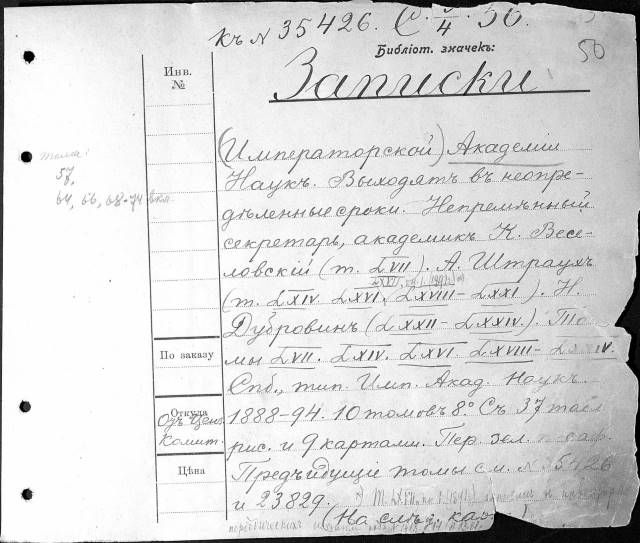 Къ № 35426. С. 3/4. 50.
50
Библіот. значекъ:
Инв. №
Записки
(Императорской) Академіи
Наукъ. Выходятъ въ неопре-
дѣленные сроки. Непремѣнный
секретарь, академикъ К. Весе-
ловскій (т. LVII). А. Штраухъ
(т. LXIV. LXVI, LXVIII–LXXI). Н.
Дубровинъ (LXXII–LXXIV). То-
мы LVII. LXIV. LXVI. LXVIII–LXXIV.
Спб., тип. Имп. Акад. Наукъ
1888–94. 10 томовъ 8° Съ 37 табл.
рис. и 9 картами. Пер. зел.
Предъидущие томы см. № 5426
и 23829.
(На слѣд.
тома:
57,
64, 66, 68-74 вкл.
По заказу
Откуда
Одъ Цен.
Комит.
Цѣна